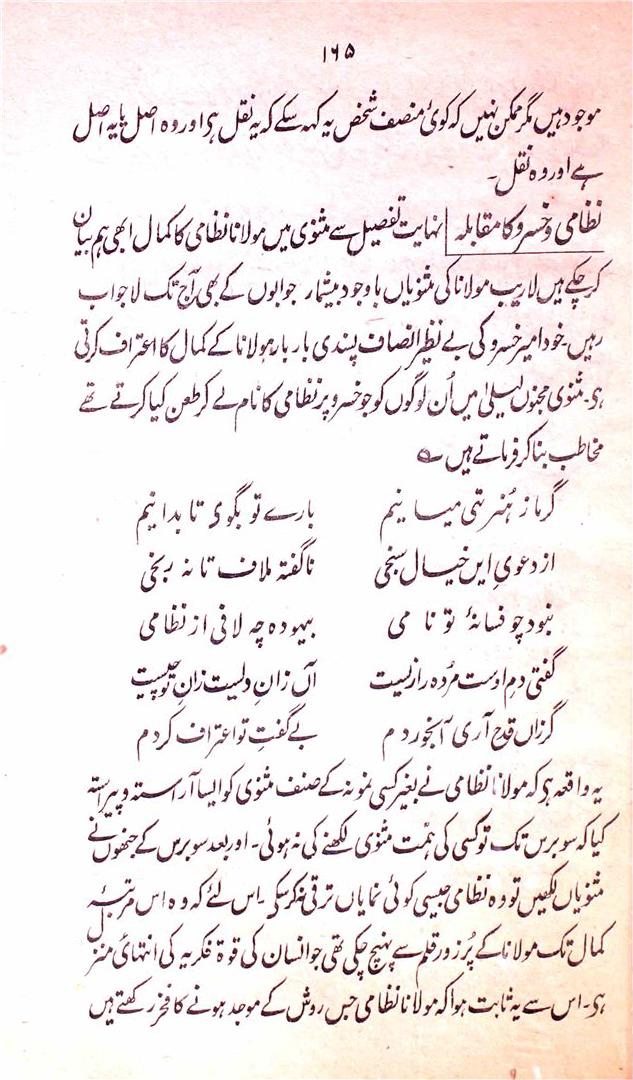 ۱۶۵
موجود ہیں مگر ممکن نہیں کہ کوئی منصف شخص یہ کہہ سکے کہ یہ نقل ہی اور وہ اصل یا یہ اصل
ہے اور وہ نقل۔
نظامی و خسرو کا مقابلہ نہایت تفصیل سے مثنوی میں مولانا نظامی کا کمال ابھی ہم بیان
کر چکے ہیں لاریب مولانا کی مثنویاں باوجود بیشمار جوابوں کے بھی آج تک لاجواب
رہیں۔ خود امیر خسرو کی بے نظیر انصاف پسندی بار بار مولانا کے کمال کا اعتراف کرتی
ہی۔ مثنوی مجنوں لیلیٰ میں اُن لوگوں کو جو خسرو پر نظامی کا نام لے کر طعن کیا کرتے تھے
مخاطب بنا کر فرماتے ہیں ؎
گر ما ز ہُنر تہی میانیم بارے تو بگوی تا بدانیم
از دعویِ ایں خیال سنجی ناگفتہ ملاف تا نہ رنجی
نبود چو فسانۂ تو نامی بیہودہ چہ لافی از نظامی
گفتی دمِ اوست مُردہ را زیست آں زانِ ویست زانِ تو چیست
گر زاں قدح آری آبخوردم بے گفتِ تو اعتراف کردم
یہ واقعہ ہی کہ مولانا نظامی نے بغیر کسی نمونہ کے صنف مثنوی کو ایسا آراستہ و پیراستہ
کیا کہ سو برس تک تو کسی کی ہمّت مثنوی لکھنے کی نہ ہوئی۔ اور بعد سو برس کے جنھوں نے
مثنویاں لکھیں تو وہ نظامی جیسی کوئی نمایاں ترقی نہ کر سکی۔ اس لئے کہ وہ اس مرتبۂ
کمال تک مولانا کے پُر زور قلم سے پہنچ چکی تھی جو انسان کی قوۃ فکریہ کی انتہائی منزل
ہی۔ اس سے یہ ثابت ہوا کہ مولانا نظامی جس روش کے موجد ہونے کا فخر رکھتے ہیں